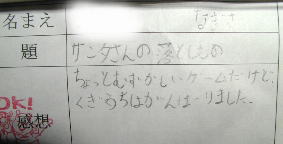 名まえ なぎさ
題 サンタさんの落としもの
ちょっとむずかしいゲームだけど、
くぎうちはがんばりました。
OK!
感想